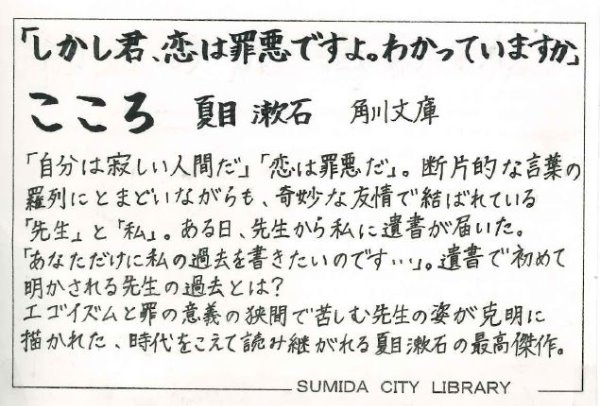 「しかし君、恋は罪悪ですよ。わかっていますか」
こころ 夏目漱石 角川文庫
「自分は寂しい人間だ」「恋は罪悪だ」。断片的な言葉の
羅列にとまどいながらも、奇妙な友情で結ばれている
「先生」と「私」。ある日、先生から私に遺書が届いた。
「あなただけに私の過去を書きたいのです…」。遺書で初めて
明かされる先生の過去とは?
エゴイズムと罪の意義の狭間で苦しむ先生の姿が克明に
描かれた、時代をこえて読み継がれる夏目漱石の最高傑作。
SUMIDA CITY LIBRARY